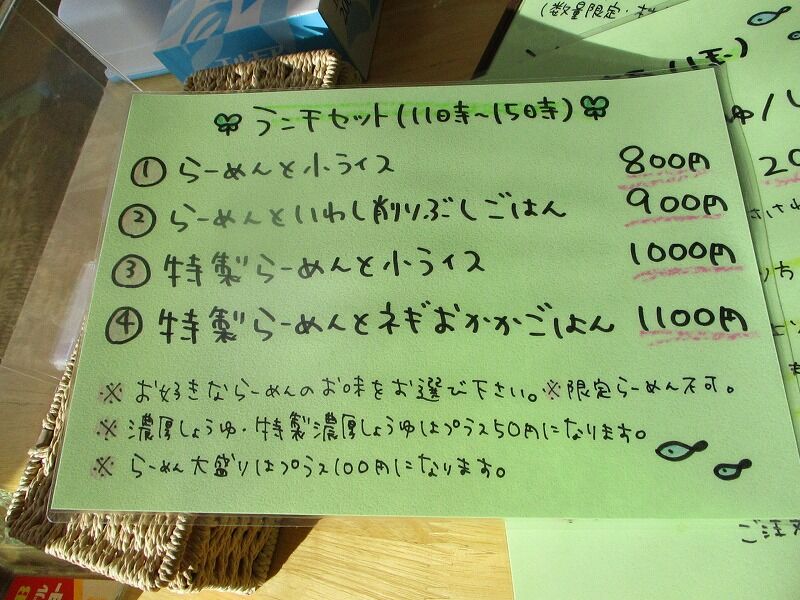 (数量限定・
ランチセット(11時〜15時)
① らーめんと小ライス 800円
② らーめんといわし削りぶしごはん 900円
③ 特製らーめんと小ライス 1000円
④ 特製らーめんとネギおかかごはん 1100円
※ お好きならーめんのお味をお選び下さい。※限定らーめん不可。
※ 濃厚しょうゆ・特製濃厚しょうゆはプラス50円になります。
※ らーめん大盛りはプラス100円になります。